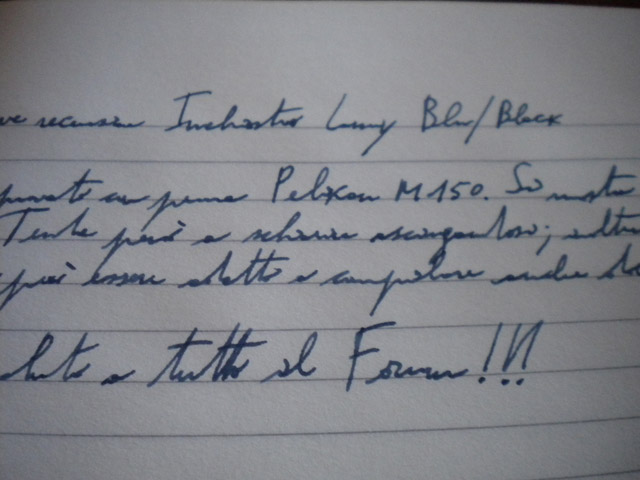 ve recensione Inchiostro Lamy Blu/Black
provato con penna Pelikan M150. Si mostra
Tende però a schiarire asciugandosi; oltre
può essere adatto a compilare anche
aluto a tutto il Forum!!!